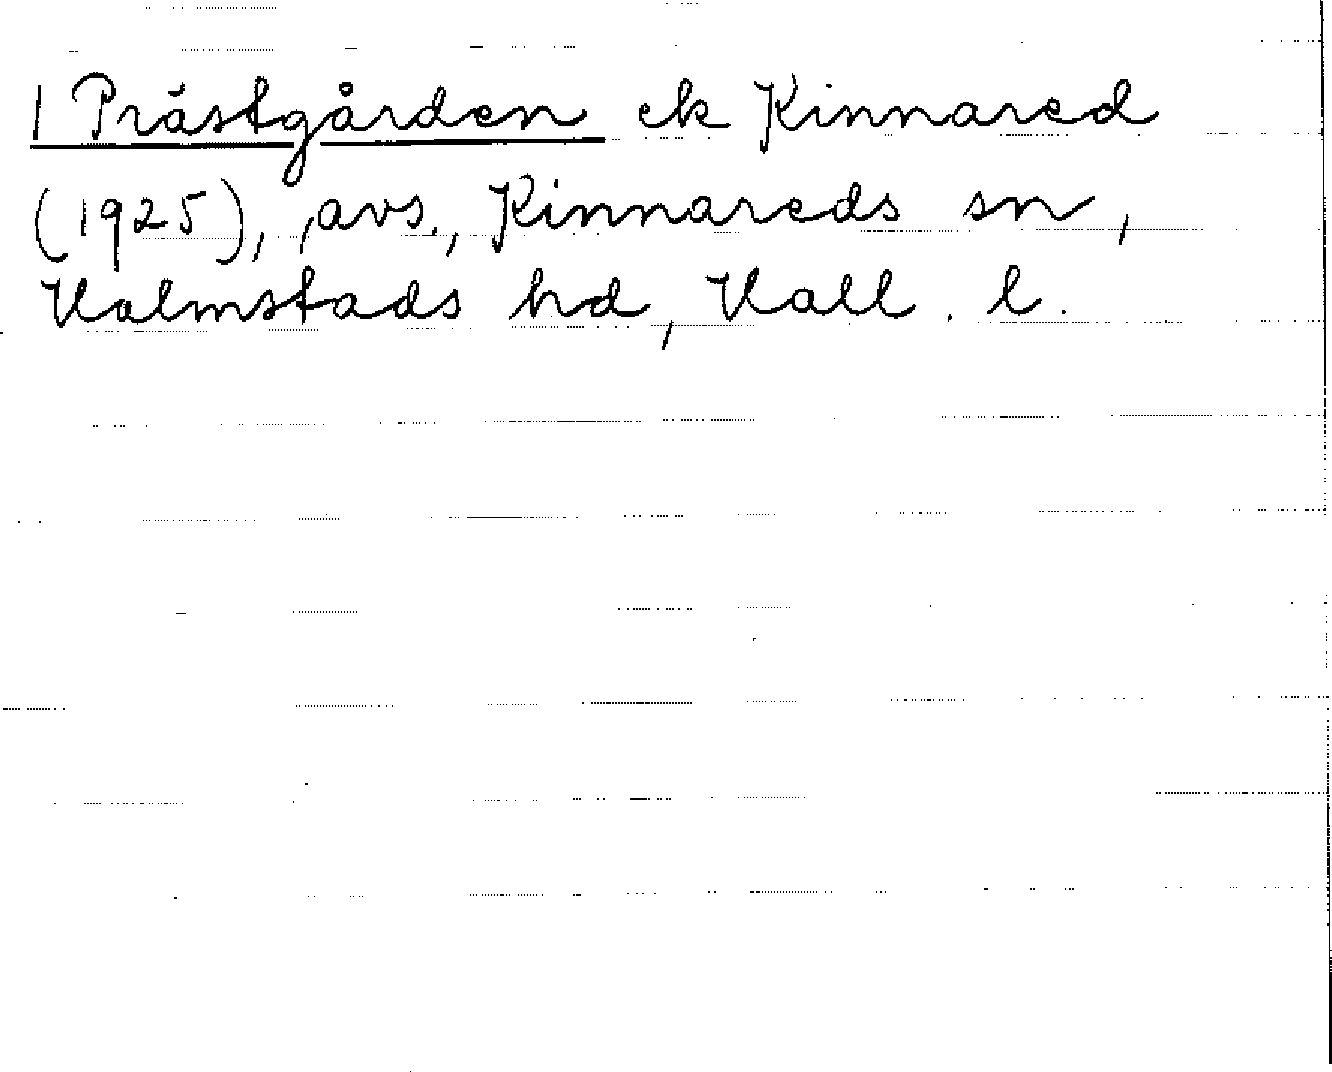 1 Prästgården ek Kinnared
(1925), avs., Kinnareds sn,
Halmstads hd, Hall. l.